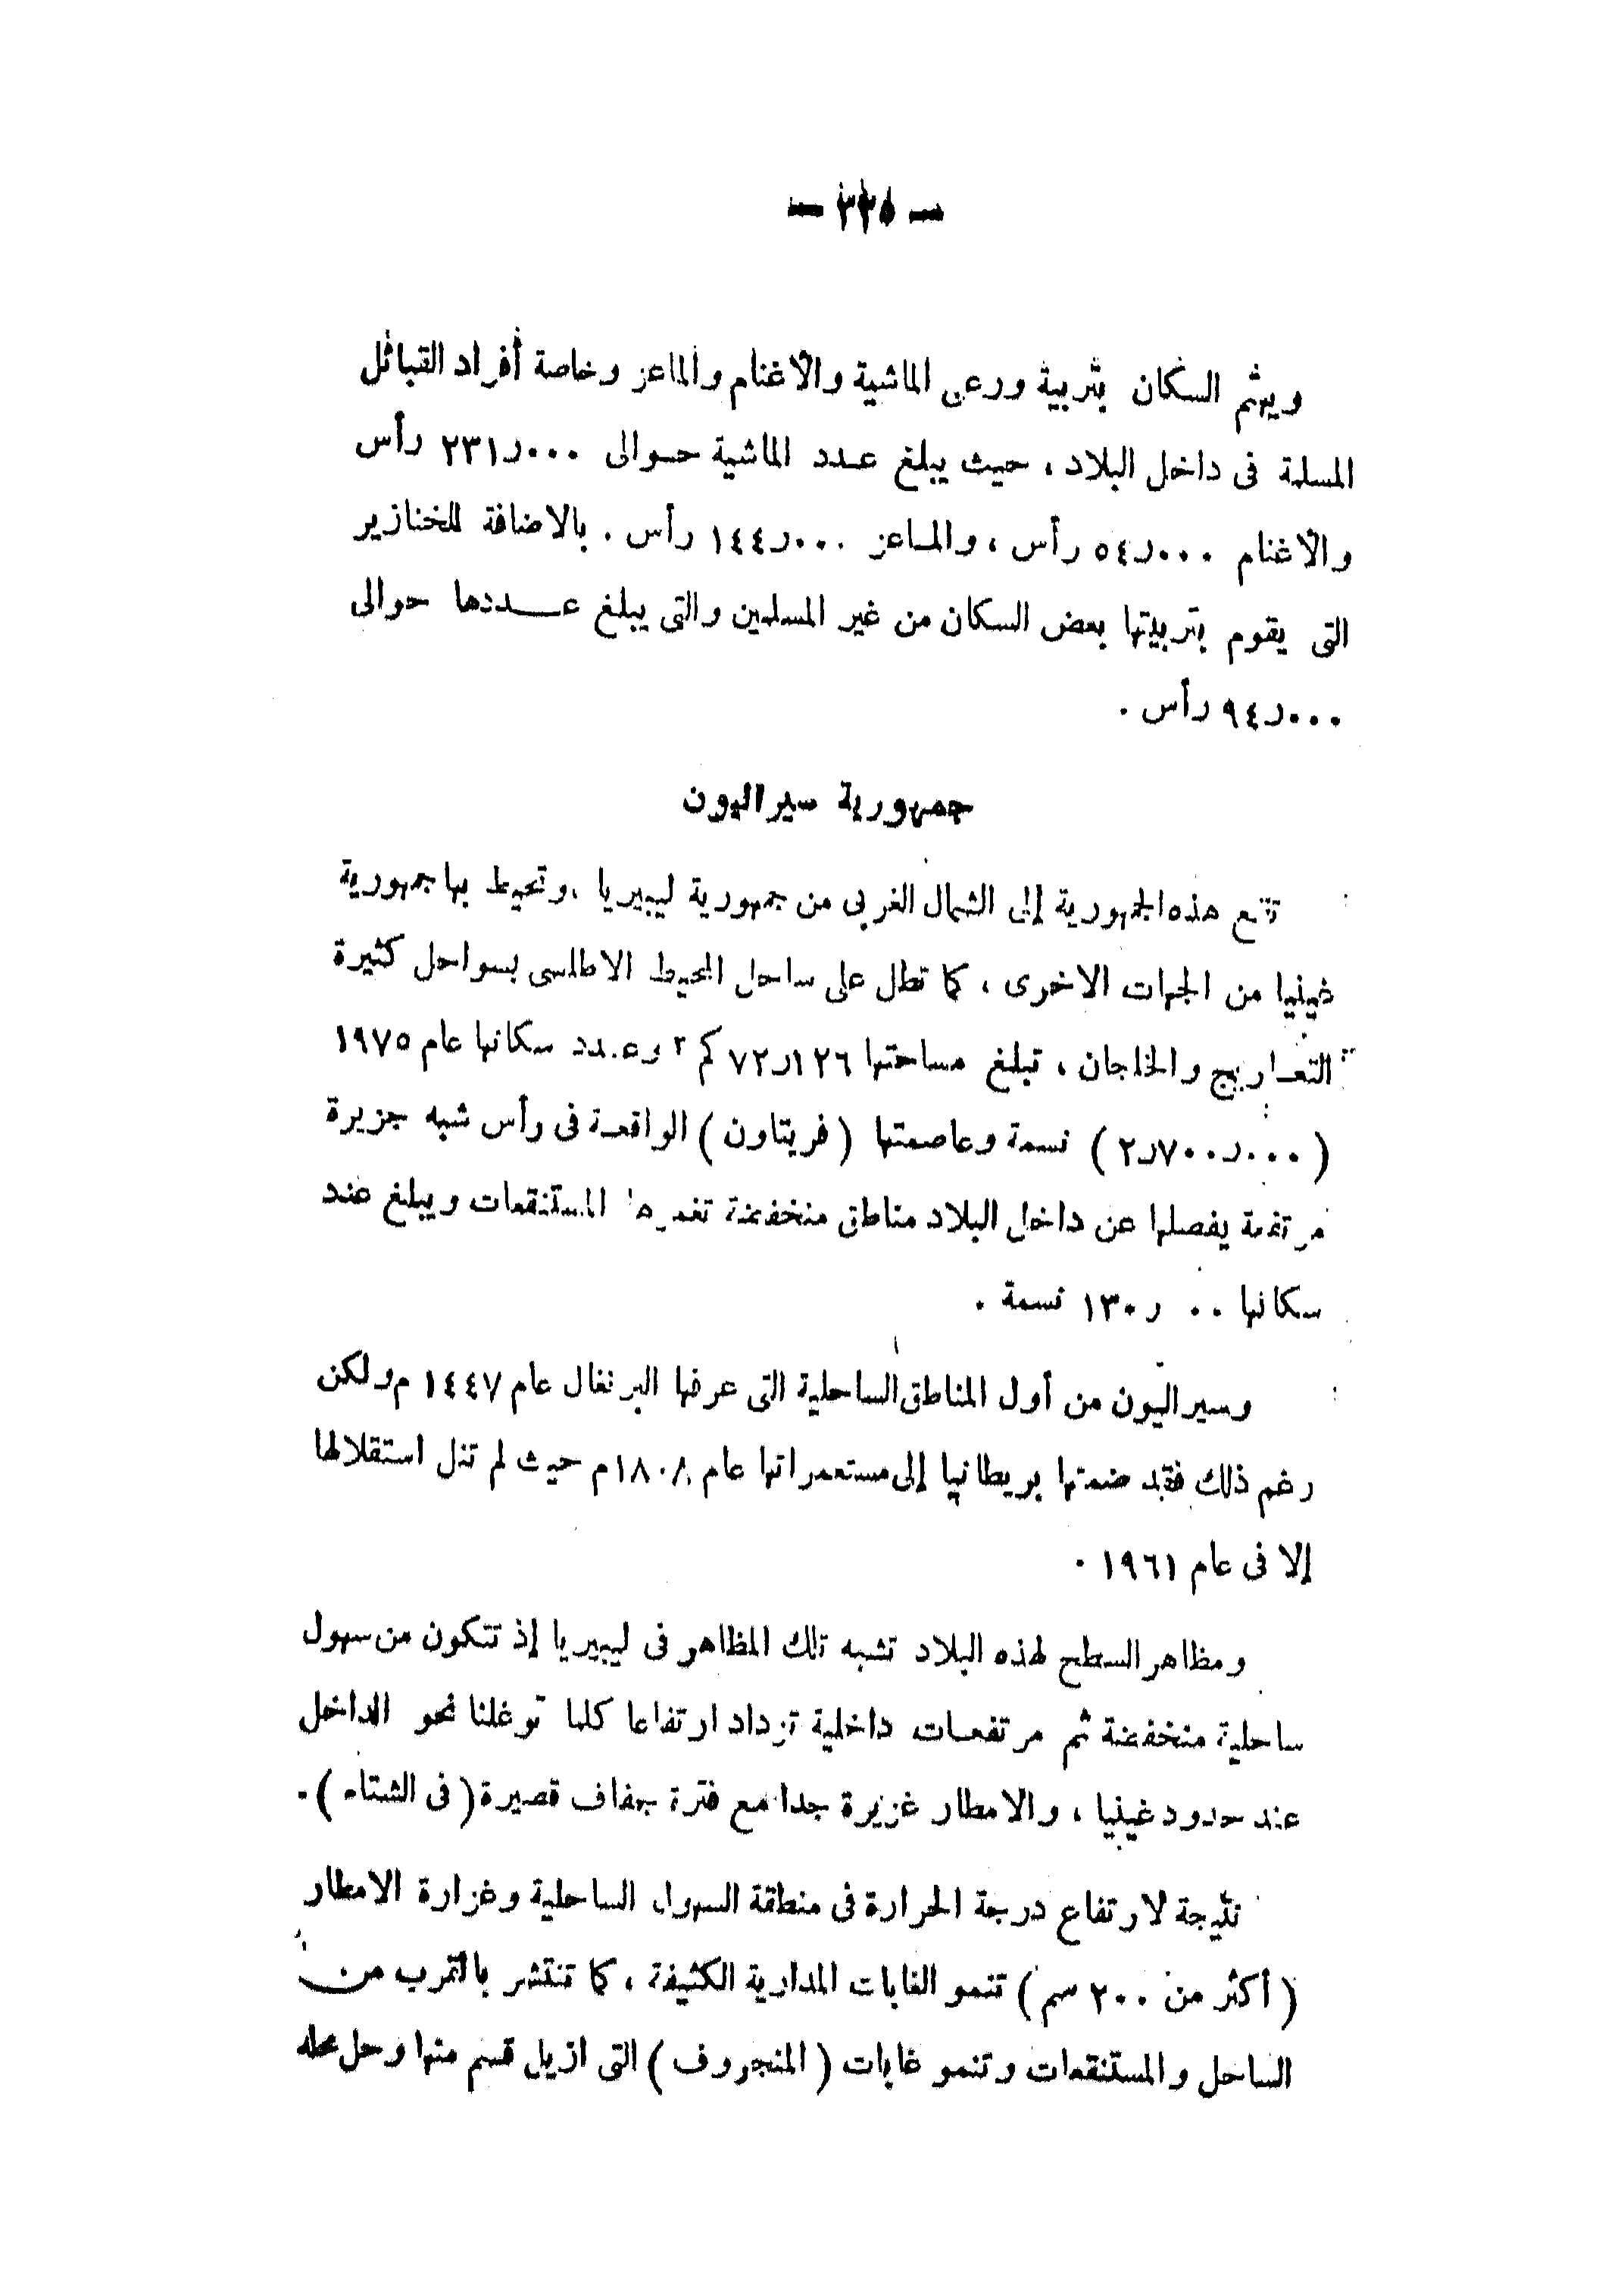 — ٣٣٥ —
ويهتم السكان بتربية ورعى الماشية والأغنام والماعز وخاصة أفراد القبائل
المسلمة فى داخل البلاد ، حيث يبلغ عدد الماشية حوالى ٢٣١ر٠٠٠ رأس
والأغنام ٥٤ر٠٠٠ رأس ، والماعز ١٤٤ر٠٠٠ رأس . بالاضافة للخنازير
التى يقوم بتربيتها بعض السكان من غير المسلمين والتى يبلغ عددها حوالى
٩٤ر٠٠٠ رأس .
جمهورية سيراليون
تقع هذه الجمهورية إلى الشمال الغربى من جمهورية ليبيريا ، وتحيط بها جمهورية
غينيا من الجهات الاخرى ، كما تطل على ساحل المحيط الاطلسى بسواحل كثيرة
التعاريج والخلجان ، تبلغ مساحتها ٧٢ر١٢٦ كم ٢ وعدد سكانها عام ١٩٧٥
( ٢ر٧٠٠ر٠٠٠ ) نسمة وعاصمتها ( فريتاون ) الواقعة فى رأس شبه جزيرة
مرتفعة يفصلها عن داخل البلاد مناطق منخفضة تغمرها المستنقعات ويبلغ عدد
سكانها ١٣٠ر ٠٠ نسمة .
وسيراليون من أول المناطق الساحلية التى عرفها البرتغال عام ١٤٤٧ م ولكن
رغم ذلك فقد ضمتها بريطانيا إلى مستعمراتها عام ١٨٠٨م حيث لم تنل استقلالها
إلا فى عام ١٩٦١ .
ومظاهر السطح لهذه البلاد تشبه تلك المظاهر فى ليبيريا إذ تتكون من سهول
ساحلية منخفضة ثم مرتفعات داخلية تزداد ارتفاعا كلما توغلنا نحو الداخل
عند حدود غينيا ، والامطار غزيرة جدا مع فترة جفاف قصيرة ( فى الشتاء ) .
نتيجة لارتفاع درجة الحرارة فى منطقة السهول الساحلية وغزارة الامطار
( أكثر من ٢٠٠ سم ) تنمو الغابات المدارية الكثيفة ، كما تنتشر بالقرب من
الساحل والمستنقعات وتنمو غابات ( المنجروف ) التى ازيل قسم منها وحل محله